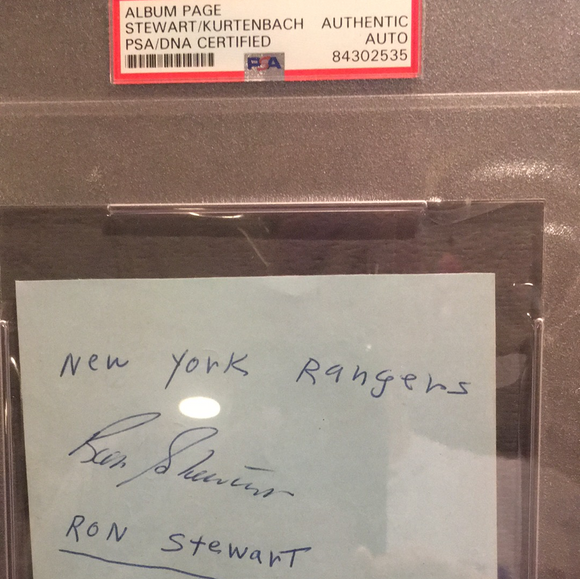 ALBUM PAGE
STEWART/KURTENBACH AUTHENTIC
PSA/DNA CERTIFIED AUTO
84302535
PSA
New York Rangers
Ron Stewart
RON Stewart